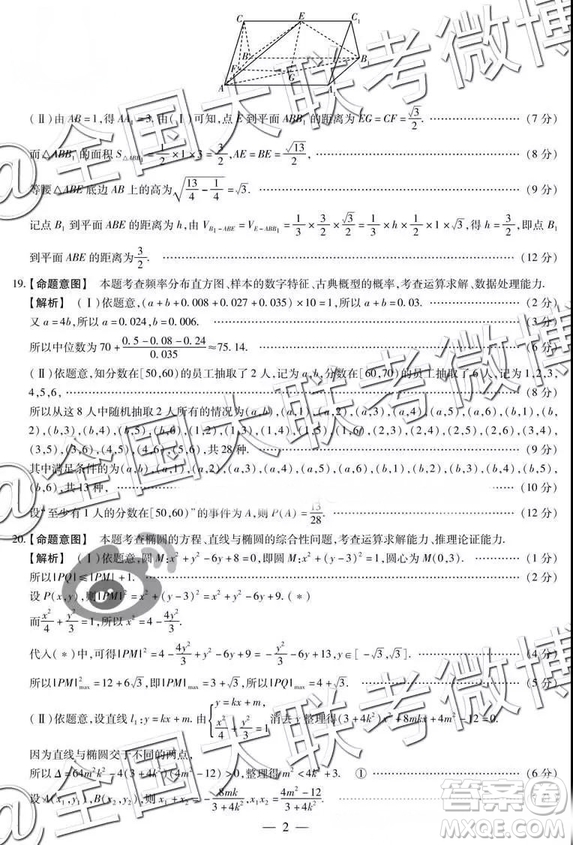 C E C₁
B F G B₁
A A₁
(Ⅱ)由 AB=1,得 AA₁=3.由(Ⅰ)可知,点 E 到平面 ABB₁ 的距离为 EG=CF=√3/2. (7 分)
而△ABB₁ 的面积 S△ABB₁=1/2×1×3=3/2,AE=BE=√13/2, (8 分)
等腰△ABE 底边 AB 上的高为√(13/4-1/4)=√3. (9 分)
记点 B₁ 到平面 ABE 的距离为 h,由 V_{B₁-ABE}=V_{E-ABB₁}=1/3×3/2×√3/2=1/3×h×1/2×1×√3,得 h=3/2,即点 B₁
到平面 ABE 的距离为3/2. (12 分)
19.【命题意图】 本题考查频率分布直方图、样本的数字特征、古典概型的概率,考查运算求解、数据处理能力.
【解析】 (Ⅰ)依题意,(a+b+0.008+0.027+0.035)×10=1,所以 a+b=0.03. (2 分)
又 a=4b,所以 a=0.024,b=0.006. (3 分)
所以中位数为 70+(0.5-0.08-0.24)/0.035≈75.14. (6 分)
(Ⅱ)依题意,知分数在[50,60)的员工抽取了 2 人,记为 a,b,分数在[60,70)的员工抽取了 6 人,记为 1,2,3,
4,5,6,
所以从这 8 人中随机抽取 2 人所有的情况为(a,b),(a,1),(a,2),(a,3),(a,4),(a,5),(a,6),(b,1),(b,
2),(b,3),(b,4),(b,5),(b,6),(1,2),(1,3),(1,4),(1,5),(1,6),(2,3),(2,4),(2,5),(2,6),(3,4),
(3,5),(3,6),(4,5),(4,6),(5,6),共 28 种. (9 分)
其中满足条件的为(a,b),(a,1),(a,2),(a,3),(a,4),(a,5),(a,6),(b,1),(b,2),(b,3),(b,4),(b,5),
(b,6),共 13 种, (10 分)
设“至少有 1 人的分数在[50,60)”的事件为 A,则 P(A)=13/28. (12 分)
20.【命题意图】 本题考查椭圆的方程、直线与椭圆的综合性问题,考查运算求解能力、推理论证能力.
【解析】 (Ⅰ)依题意,圆 M:x²+y²-6y+8=0,即圆 M:x²+(y-3)²=1,圆心为 M(0,3). (1 分)
所以|PQ|≤|PM|+1. (2 分)
设 P(x,y),则|PM|²=x²+(y-3)²=x²+y²-6y+9.(*)
而x²/4+y²/3=1,所以 x²=4-4y²/3.
代入(*)中,可得|PM|²=4-4y²/3+y²-6y+9=-y²/3-6y+13,y∈[-√3,√3]. (4 分)
所以|PM|²max=12+6√3,即|PM|max=3+√3,所以|PQ|max=4+√3. (5 分)
(Ⅱ)依题意,设直线 l₁:y=kx+m.由{y=kx+m, x²/4+y²/3=1,消去 y 整理得(3+4k²)x²+8mkx+4m²-12=0.
因为直线与椭圆交于不同的两点,
所以 Δ=64m²k²-4(3+4k²)(4m²-12)>0,整理得 m²<4k²+3. ① (6 分)
设 A(x₁,y₁),B(x₂,y₂),则 x₁+x₂=-8mk/(3+4k²),x₁x₂=(4m²-12)/(3+4k²).
— 2 —
@全国大联考微博
@全国大联考微博
@全国大联考微博
答案卷
MXQE.COM